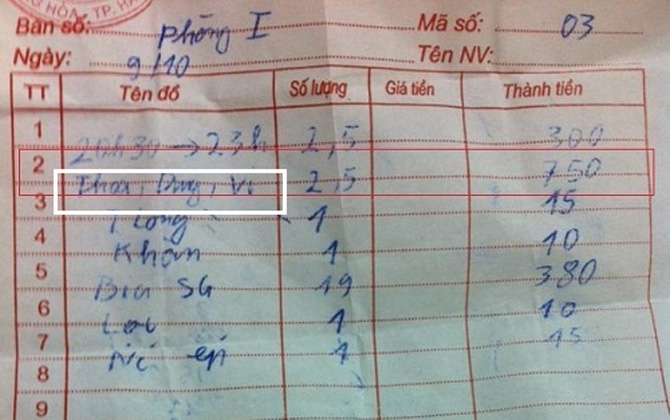 NG HÒA - TP. HÀ
Bàn số: Phòng I Mã số: 03
Ngày: 9/10 Tên NV:
TT Tên đồ Số lượng Giá tiền Thành tiền
1 20h30 → 23h 2,5 300
2 Thoa, Dung, Vi 2,5 750
3 1 Long 1 15
4 Khăn 1 10
5 Bia SG 19 380
6 Lạc 1 10
7 ép 1 15
8
9